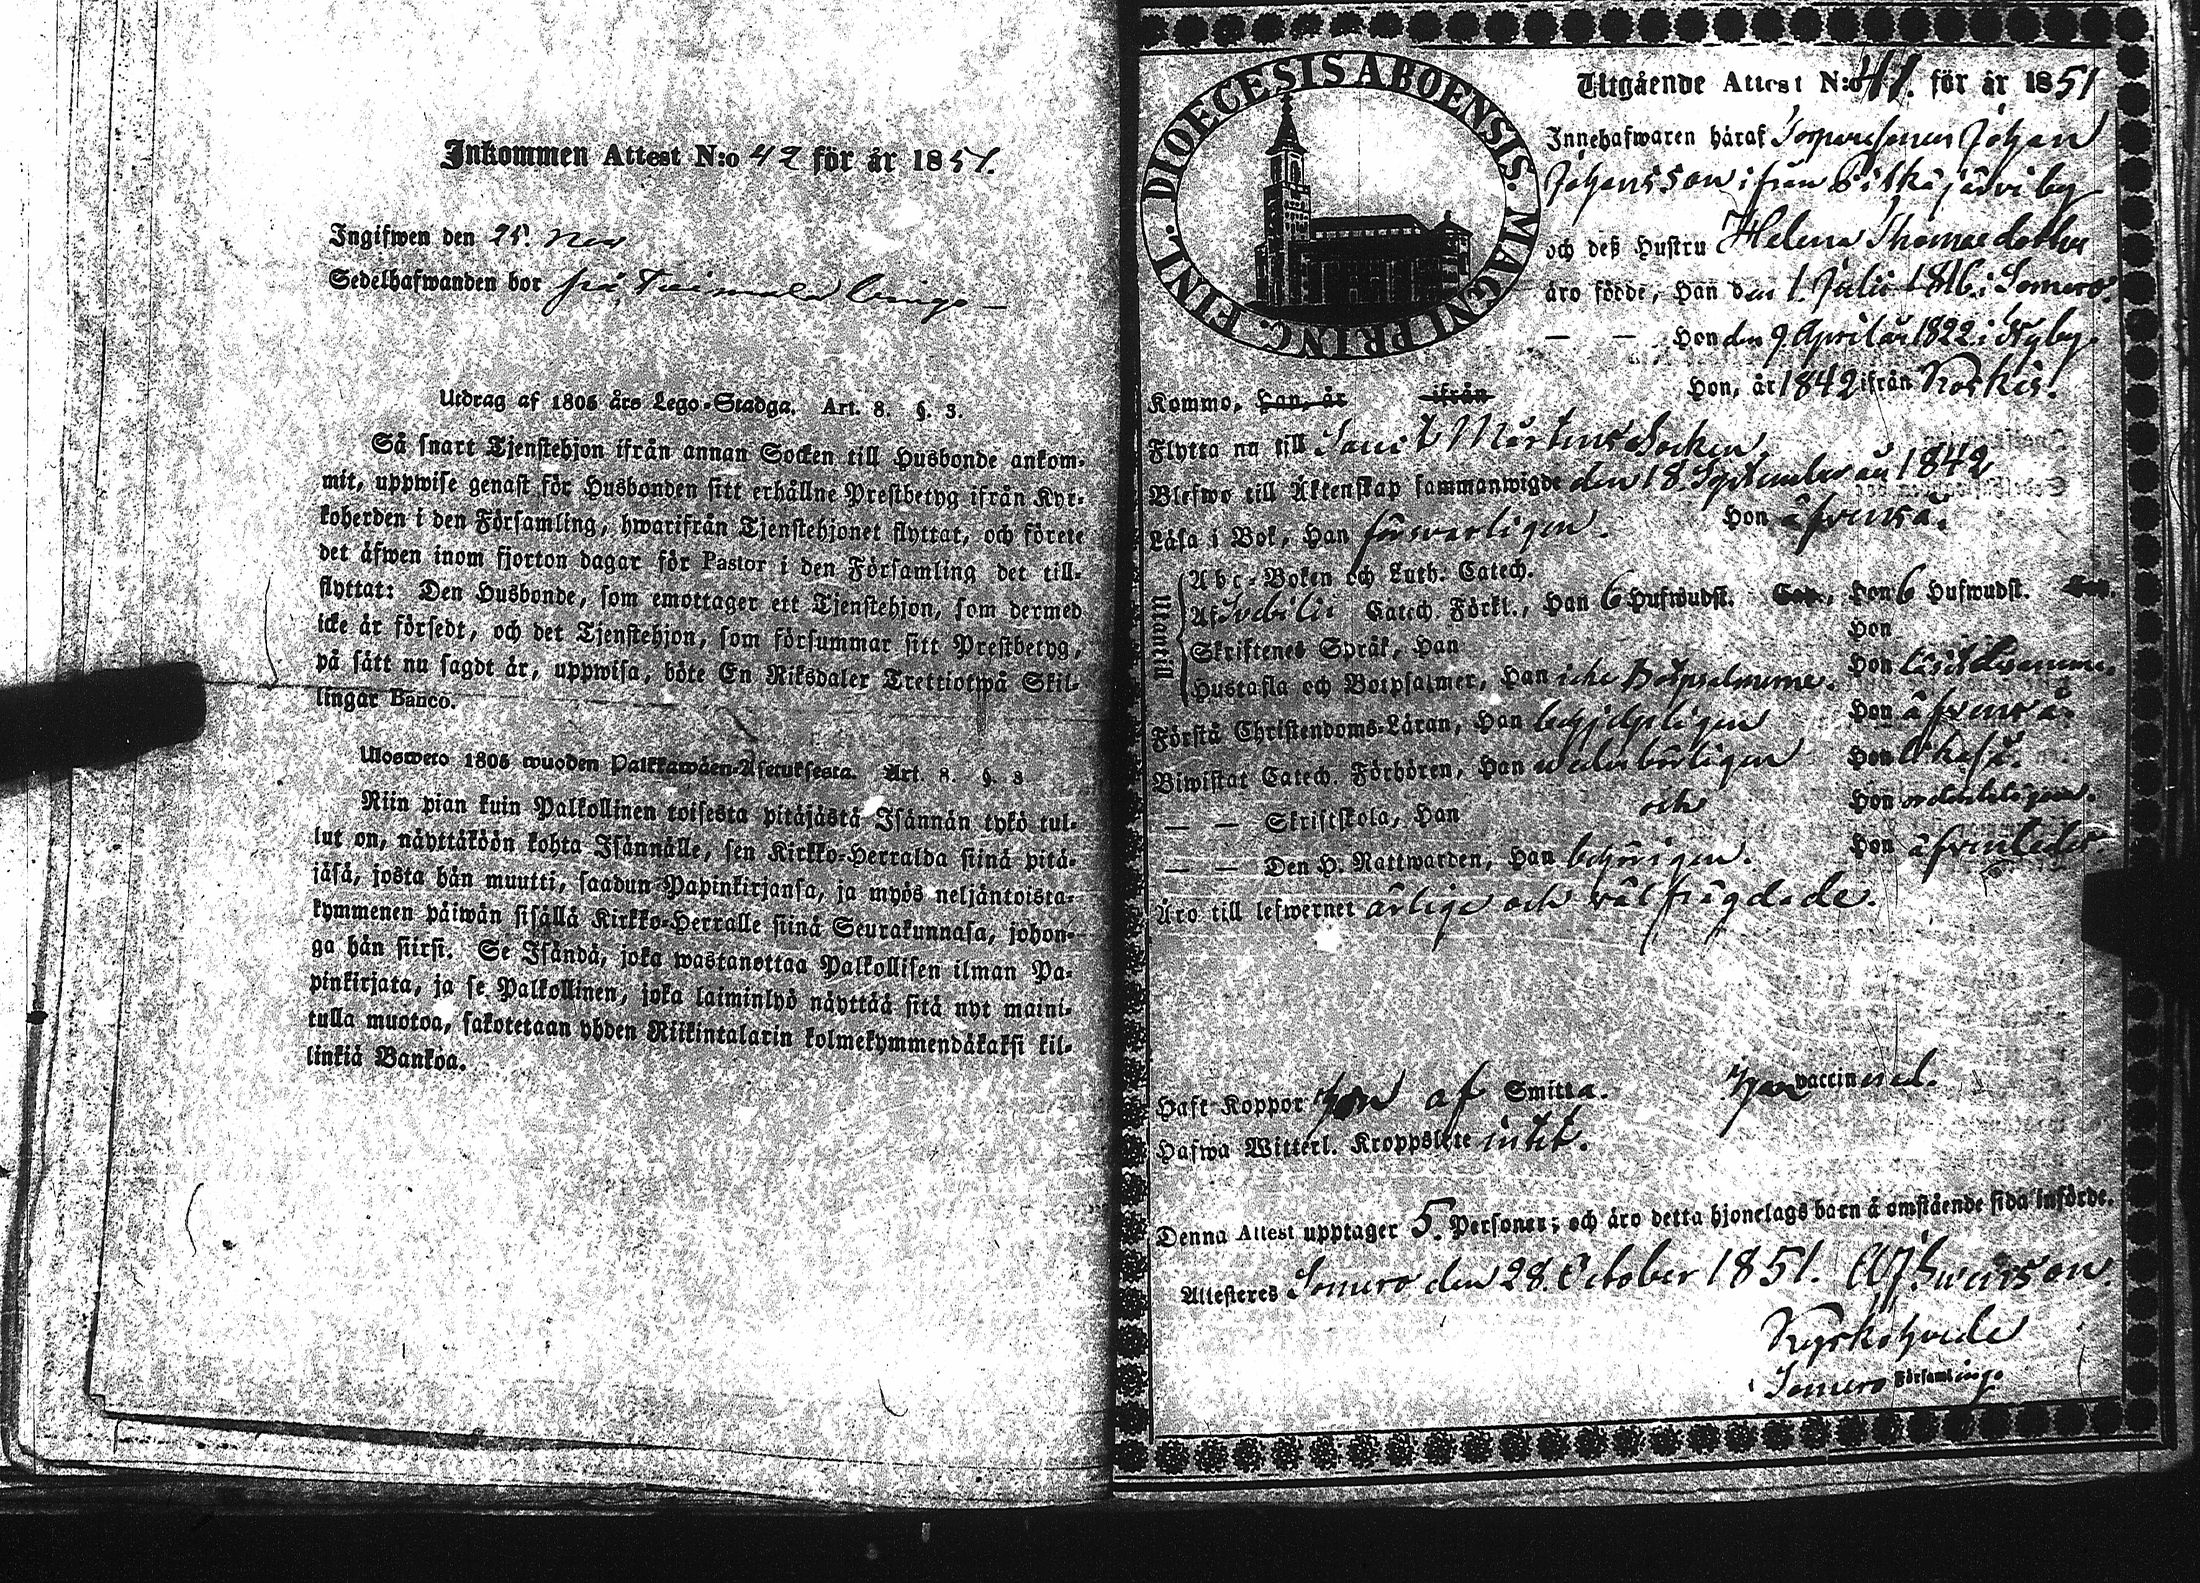 Inkommen Attest N:o 42 för år 1851.
Ingifwen den 25. Nov
Sedelhafwanden bor på
Utdrag af 1805 års Lego-Stadga. Art. 8. §. 3.
Så snart Tjenstehjon ifrån annan Socken till Husbonde ankom-
mit, uppwise genast för Husbonden sitt erhållne Prestbetyg ifrån Kyr-
koherden i den Församling, hwarifrån Tjenstehjonet flyttat, och förete
det äfwen inom fjorton dagar för Pastor i den Församling det till-
flyttat: Den Husbonde, som emottager ett Tjenstehjon, som dermed
icke är försedt, och det Tjenstehjon, som försummar sitt Prestbetyg,
på sätt nu sagdt är, uppwisa, böte En Riksdaler Trettiotwå Skil-
lingar Banco.
Ulosweto 1805 wuoden Palkkawäen-Asetuksesta. Art. 8. §. 3
Niin pian kuin Palkollinen toisesta pitäjästä Isännän tykö tul-
lut on, näyttäköön kohta Isännälle, sen Kirkko-Herralda siinä pitä-
jäsä, josta hän muutti, saadun Papinkirjansa, ja myös neljäntoista-
kymmenen päiwän sisällä Kirkko-Herralle siinä Seurakunnasa, johon-
ga hän siirsi. Se Isändä, joka wastanottaa Palkollisen ilman Pa-
pinkirjata, ja se Palkollinen, joka laiminlyö näyttää sitä nyt maini-
tulla muotoa, sakotetaan yhden Riikintalarin kolmekymmendäkaksi kil-
linkiä Bankoa.
DIOECESIS ABOENSIS. MAGNI PRINC. FINL.
Utgående Attest N:o 41. för år 1851
Innehafwaren häraf Johan
Johansson ifrån Pitkäjärvi by
och deß Hustru Helena Thomasdotter
äro födde, Han den 1. Julii i Somero.
— — Hon den 9 April år 1822 i Nyby
Kommo, Han, år ifrån Hon, år 1842 ifrån Koskis.
Flytta nu till Sanct Mårtens Socken.
Blefwo till Äktenskap sammanwigde den 18. September år 1842
Läsa i Bok, Han försvarligen. Hon äfvenså.
Utantill
Abc-Boken och Luth. Catech.
Af Svebilii Catech. Förkl., Han 6 Hufwudst. Cap., Hon 6 Hufwudst. Cap.
Skriftenes Språk, Han Hon
Hustafla och Botpsalmer, Han icke Botpsalmerne. Hon
Förstå Christendoms-Läran, Han hjelpligen Hon äfvenså.
Biwistat Catech. Förhören, Han vederbörligen Hon likaså.
— — Skriftskola, Han och Hon ordenteligen.
— — Den H. Nattwarden, Han behörigen. Hon äfvenledes
Äro till lefwernet ärlige och välfrägdade.
Haft Koppor Hon af Smitta. Han vaccinerad.
Hafwa Witterl. Kroppslyte intet.
Denna Attest upptager 5. Personer; och äro detta hjonelags barn å omstående sida införde.
Attesteres Somero den 28. October 1851.
Kyrkoherde
i Somero Församling.